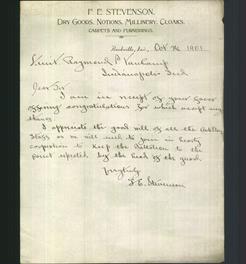 F. E. STEVENSON,
DRY GOODS, NOTIONS, MILLINERY, CLOAKS,
CARPETS AND FURNISHINGS.
Rockville, Ind., Oct 14 1901
Lieut Raymond P Van Camp
Indianapolis Ind
Dear Sir
I am in receipt of your favor
of congratulations for which accept my
thanks.
I appreciate the good will of all the
Staff or me will to join in hearty
cooperation to keep the to the
point by the head of the guard.
Very truly
F. E. Stevenson